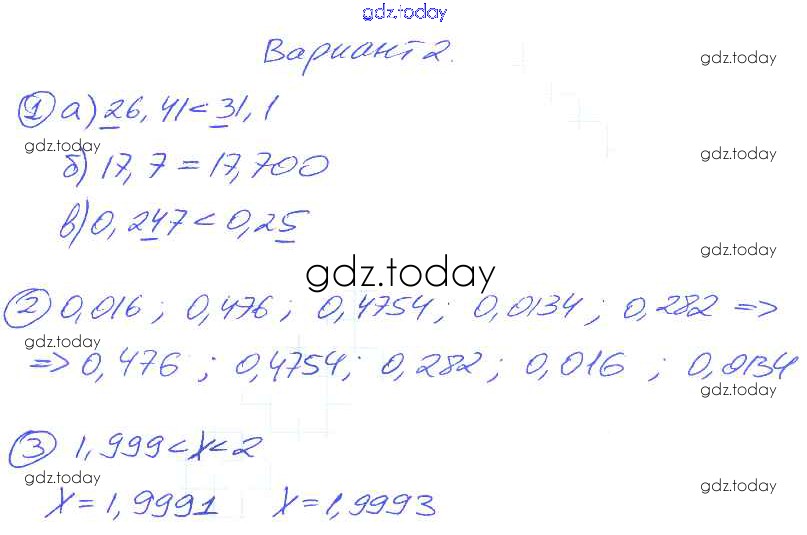 gdz.today
Вариант 2.
gdz.today
① а) 26,41 < 31,1
gdz.today
б) 17,7 = 17,700
gdz.today
в) 0,247 < 0,25
gdz.today
gdz.today
② 0,016 ; 0,476 ; 0,4754 ; 0,0134 ; 0,282 =>
gdz.today
=> 0,476 ; 0,4754 ; 0,282 ; 0,016 ; 0,0134
gdz.today
③ 1,999 < x < 2
gdz.today
gdz.today
x = 1,9991 x = 1,9993